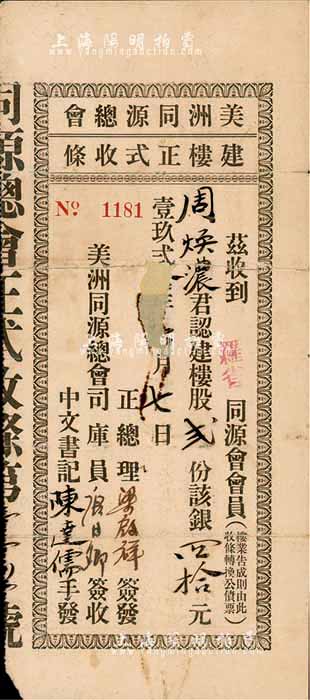 美洲同源總會
建樓正式收條
No. 1181
茲收到 羅省 同源會會員（樓業告成則由此收條轉換公債票）
周煥濃君認建樓股弍份該銀四拾元
壹玖弍 年 月七日
正總理 簽發
美洲同源總會司庫員 簽收
中文書記陳達儒手發
同源總會正式收條第 號
上海陽明拍賣
www.yangmingauction.com